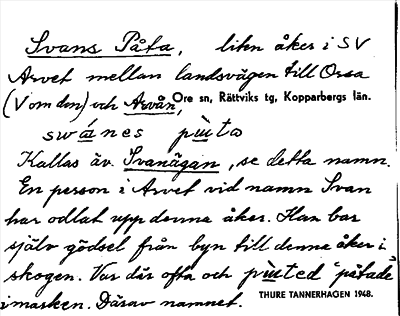 Svans Påta, liten åker i SV
Arvet mellan landsvägen till Orsa
(V om den) och Arvån, Ore sn, Rättviks tg, Kopparbergs län.
swánes pùta
Kallas äv. Svanägan, se detta namn.
En person i Arvet vid namn Svan
har odlat upp denna åker. Han bar
själv gödsel från byn till denna åker i
skogen. Var där ofta och pùted "påtade"
i marken. Därav namnet. THURE TANNERHAGEN 1948.